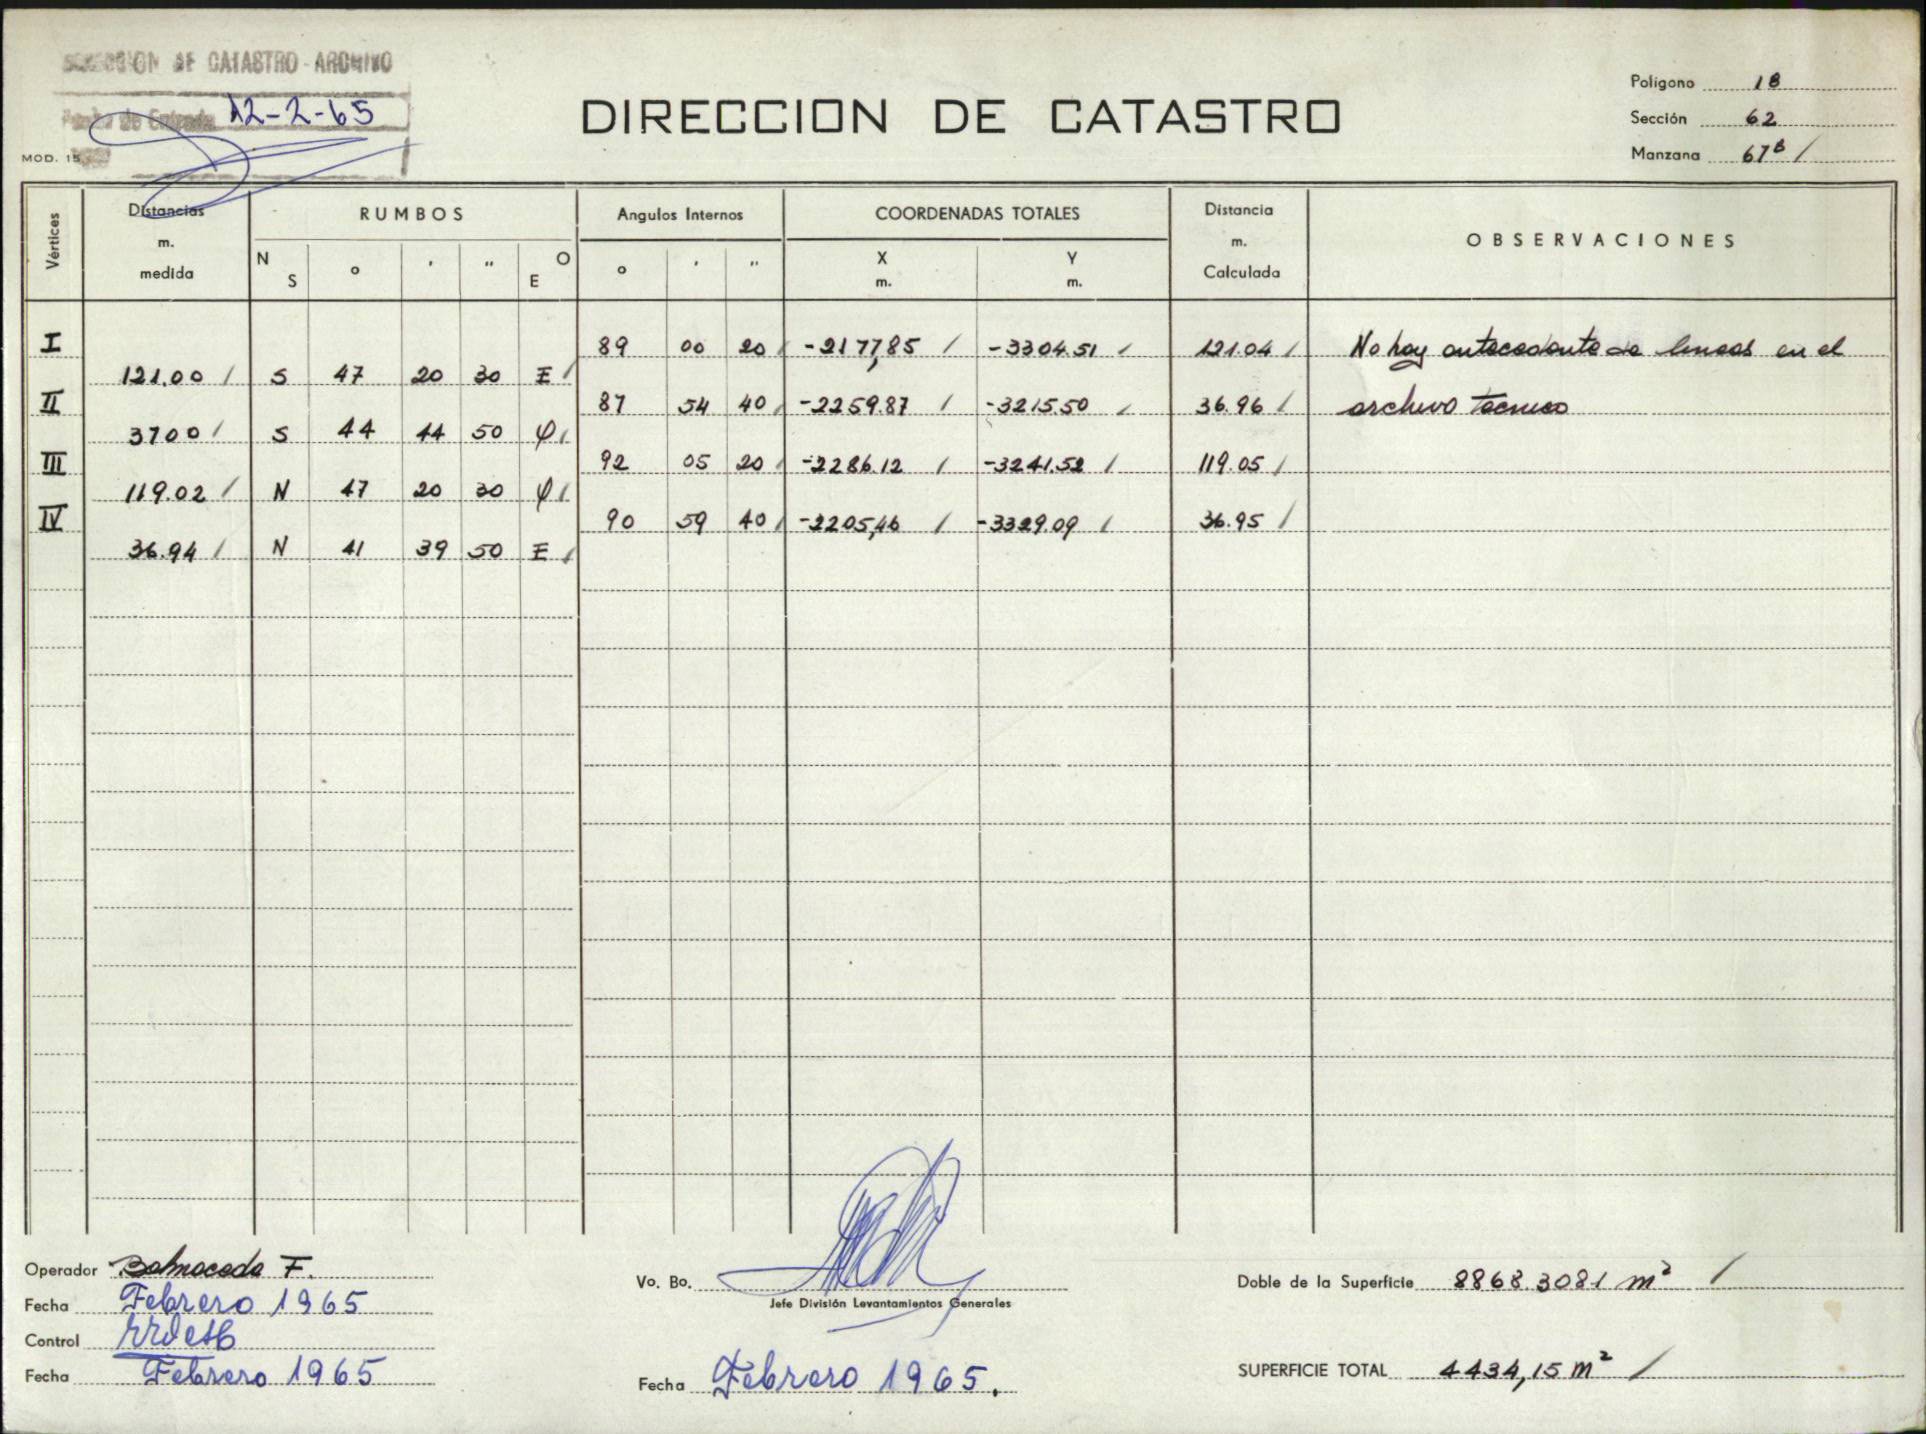 DIRECCION DE CATASTRO - ARCHIVO
Fecha de Entrada 12-2-65
MOD. 15
DIRECCION DE CATASTRO
Polígono 18
Sección 62
Manzana 67B /
Vértices
Distancias m. medida
RUMBOS
N S ° ' " E O
Angulos Internos
° ' "
COORDENADAS TOTALES
X m. Y m.
Distancia m. Calculada
OBSERVACIONES
I 89 00 20 / -2177,85 / -3304.51 / 121.04 / No hay antecedente de lineas en el
121.00 / S 47 20 30 E /
II 87 54 40 / -2259.87 / -3215.50 / 36.96 / archivo tecnico
37.00 / S 44 44 50 O /
III 92 05 20 / -2286.12 / -3241.52 / 119.05 /
119.02 / N 47 20 30 O /
IV 90 59 40 / -2205,46 / -3329.09 / 36.95 /
36.94 / N 41 39 50 E /
Operador Balmaceda F.
Fecha Febrero 1965
Control
Fecha Febrero 1965
Vo. Bo.
Jefe División Levantamientos Generales
Fecha Febrero 1965.
Doble de la Superficie 8868.3081 m² /
SUPERFICIE TOTAL 4434,15 m² /